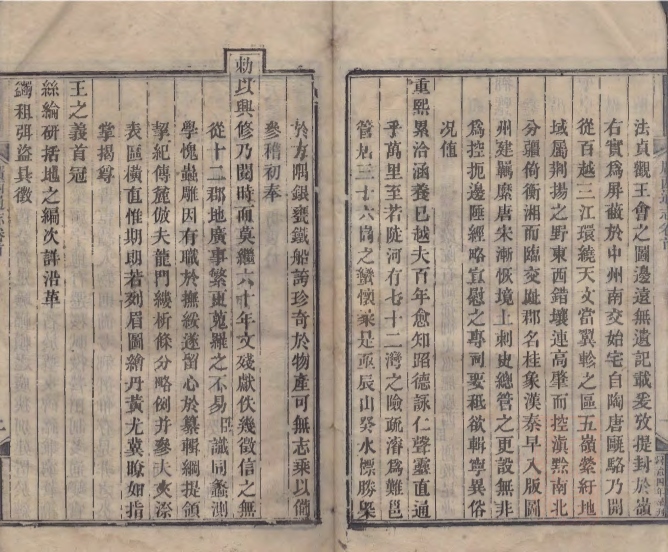 法貞觀王會之圖邊遠記載爰攷提封於嶺
右實爲屏蔽於中州南交始宅自陶唐駱乃開
從百越三江環繞天文當翼軫之區五嶺縈紆地
域屬荊揚之野東西錯壤連高肇而控滇黔南北
分疆倚衡湘而臨交趾郡名桂象漢秦早入版圖
州建羈縻唐宋漸恢境上刺史總管之更設無非
爲控扼邊陲經略宣慰之專司要祗欲輯寧異俗
況值
重熙累洽涵養已越夫百年愈知蹈德詠仁聲靈直通
乎萬里至若陡河有七十二灣之險疏濬爲難邕
管居三十六峒之蠻懷柔是亟辰山癸水標勝槩
於方隅銀甕鐵船誇珍奇於物產可無志乘以備
參稽初奉
勅以興修乃閱時而莫繼六十年文殘獻佚幾徵信之無
從十二郡地廣事繁更蒐羅之不易臣識同蠡測
學愧蟲雕因有職於撫綏遂留心於纂輯綱提領
挈紀傳旣倣夫龍門縷析條分略例并參夫夾漈
表區橫直惟期朗若列眉圖繪丹黃尤冀瞭如指
掌揭尊
王之義首冠
絲綸研括地之綱次詳沿革
蠲租弭盜具徵